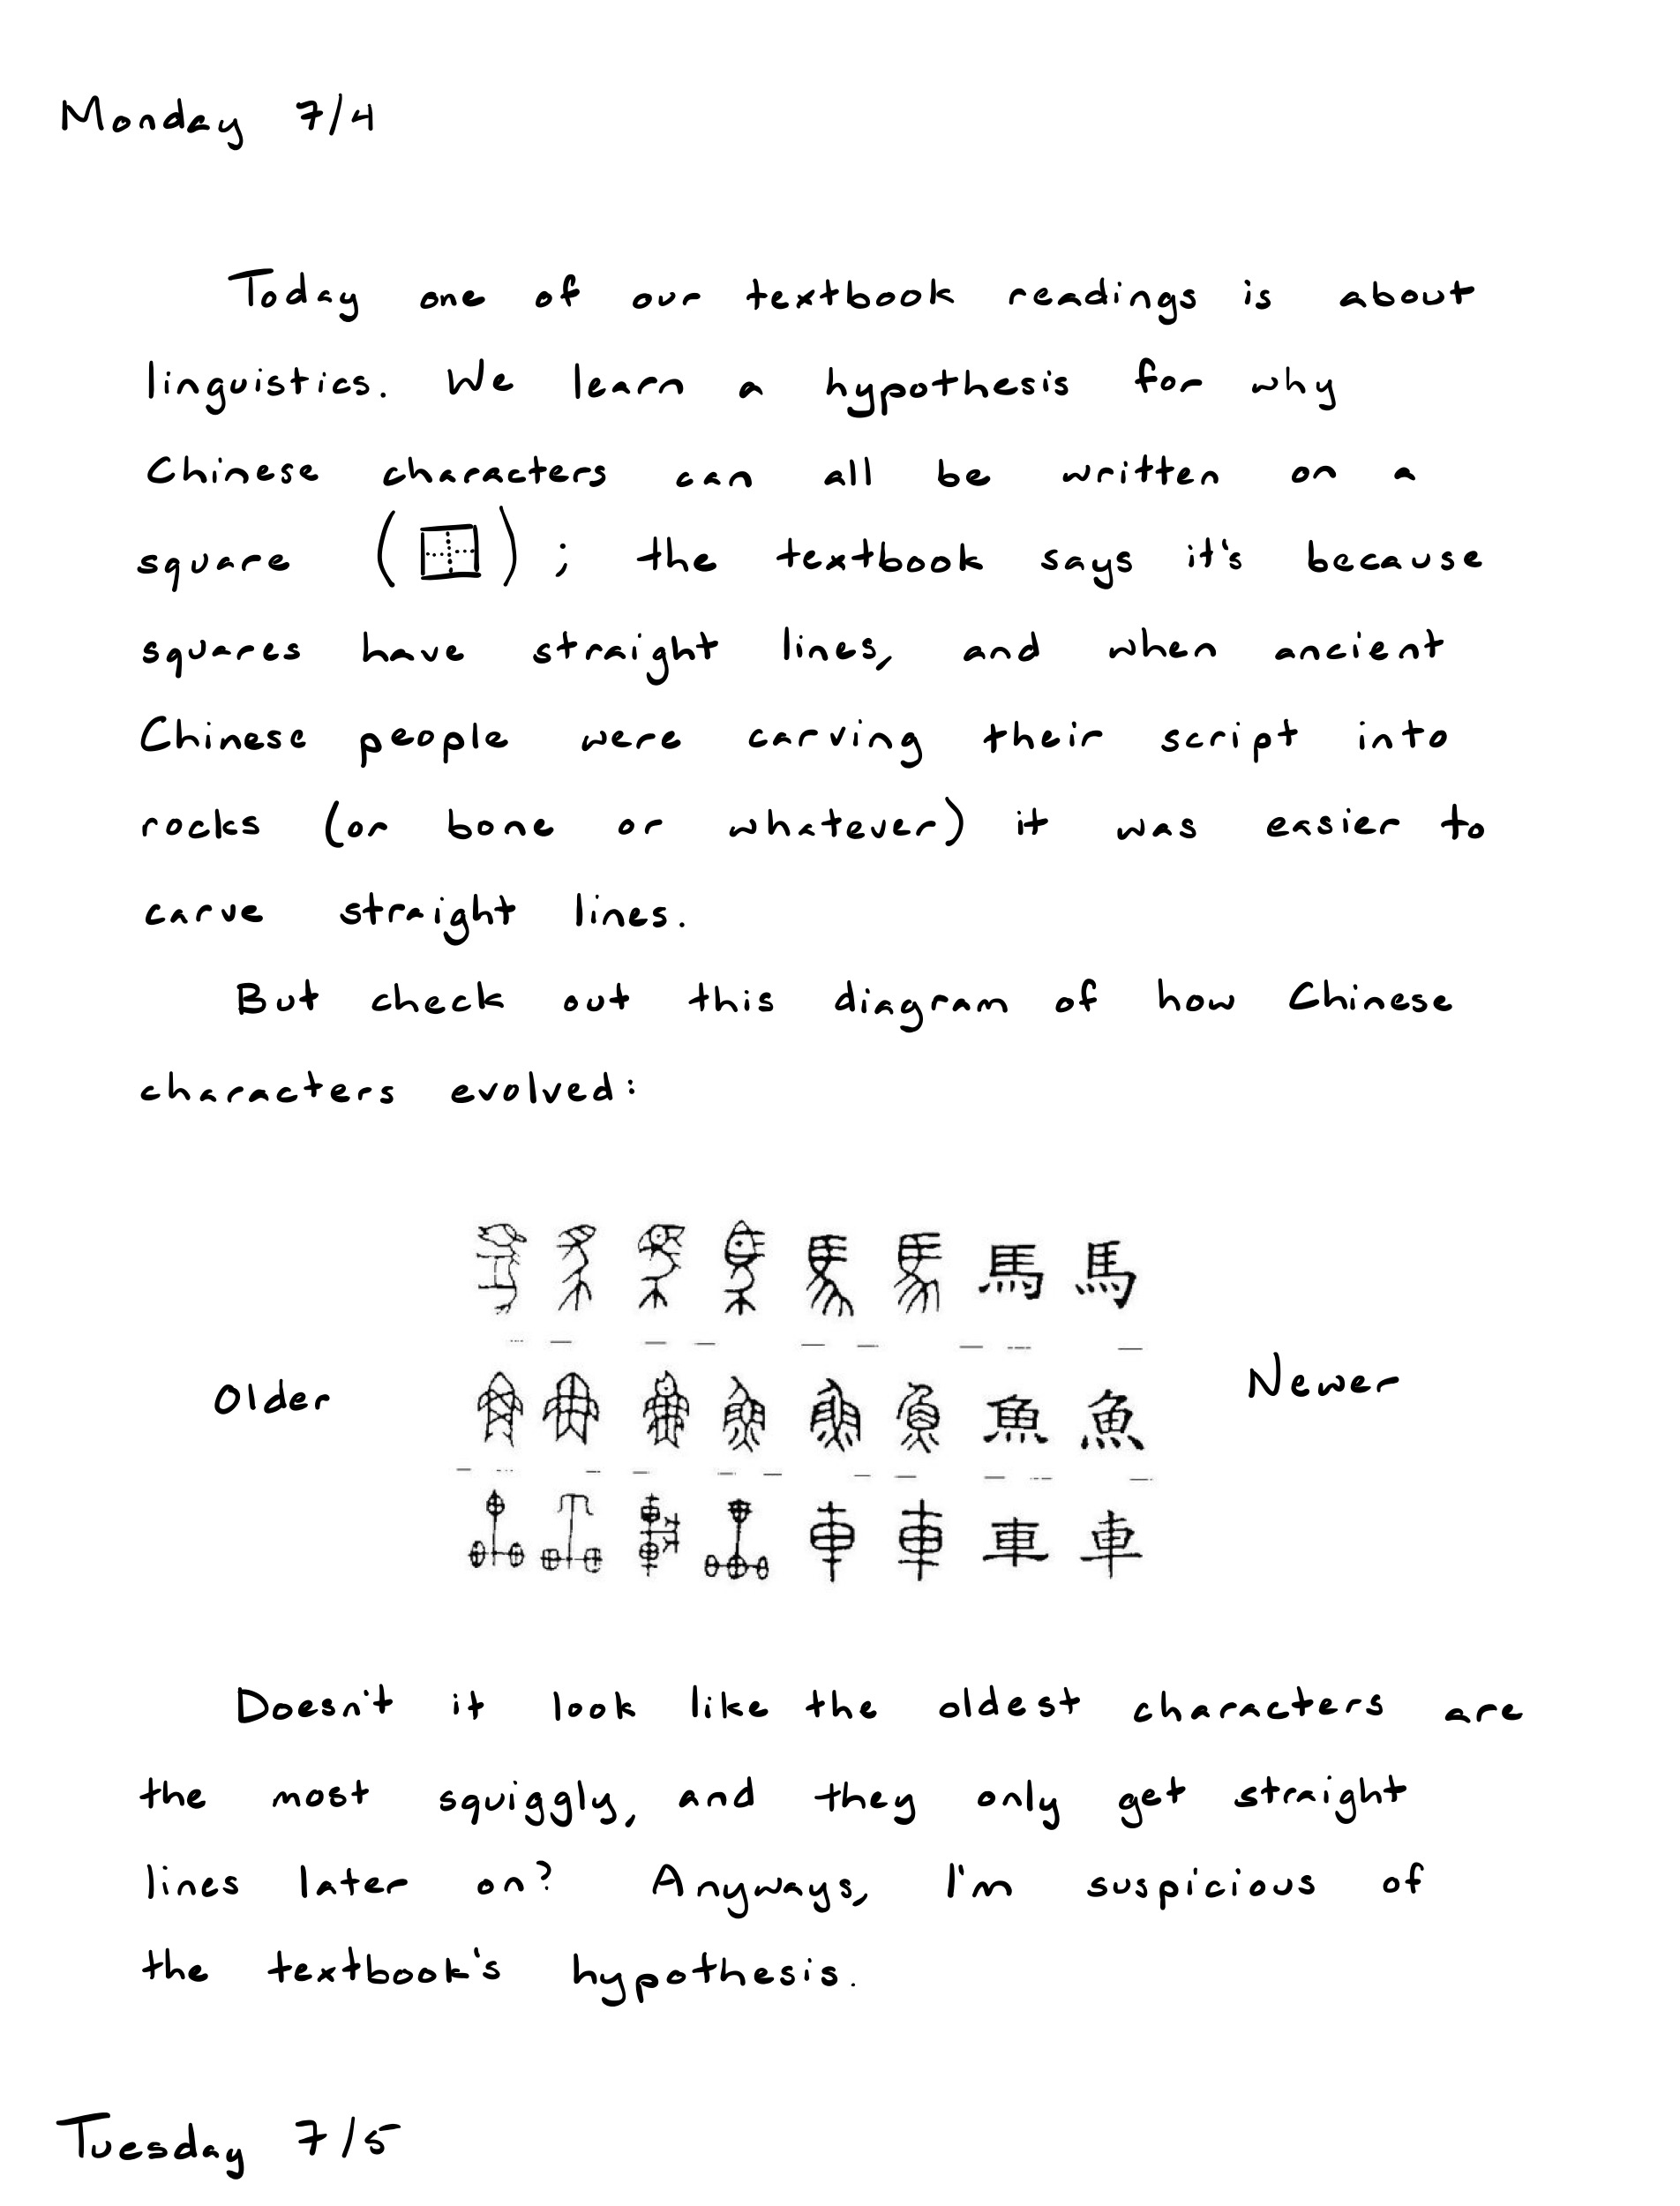 Monday 7/4
Today one of our textbook readings is about
linguistics. We learn a hypothesis for why
Chinese characters can all be written on a
square ( ) ; the textbook says it's because
squares have straight lines, and when ancient
Chinese people were carving their script into
rocks (or bone or whatever) it was easier to
carve straight lines.
But check out this diagram of how Chinese
characters evolved:
馬 馬
Older
Newer
魚 魚
車 車
Doesn't it look like the oldest characters are
the most squiggly, and they only get straight
lines later on? Anyways, I'm suspicious of
the textbook's hypothesis.
Tuesday 7/5